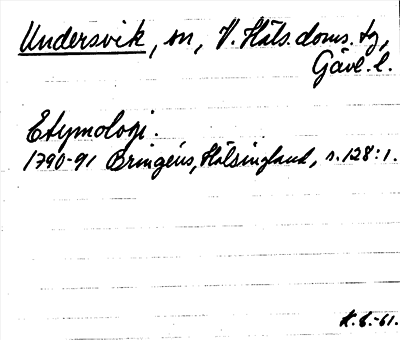 Undersvik, sn, V. Häls. doms. tg,
Gävl. l.
Etymologi.
1790-91 Bringéus, Hälsingland, s. 128:1.
K. G. -61.